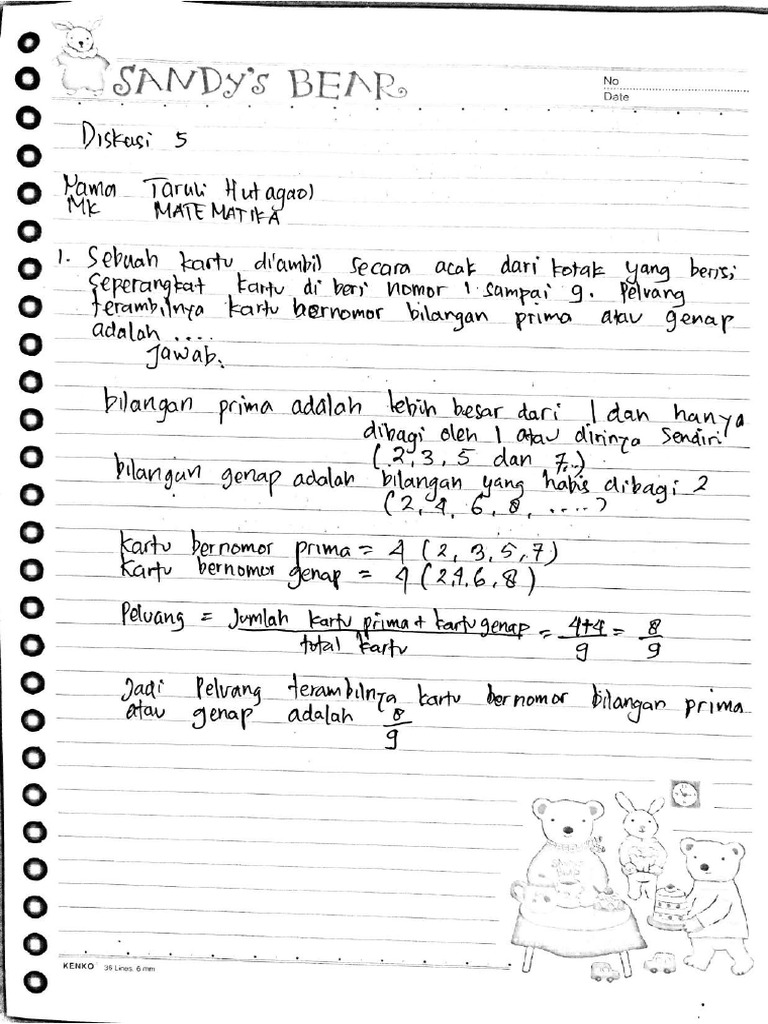 SANDY'S BEAR
No
Date
Diskusi 5
Nama Taruli Hutagaol
MK MATEMATIKA
1. Sebuah kartu diambil secara acak dari kotak yang berisi
seperangkat kartu di beri nomor 1 sampai 9. Peluang
terambilnya kartu bernomor bilangan prima atau genap
adalah ....
Jawab:
bilangan prima adalah lebih besar dari 1 dan hanya
dibagi oleh 1 atau dirinya sendiri
(2, 3, 5 dan 7...)
bilangan genap adalah bilangan yang habis dibagi 2
(2, 4, 6, 8, .....)
kartu bernomor prima = 4 (2, 3, 5, 7)
kartu bernomor genap = 4 (2,4,6,8)
Peluang = Jumlah kartu prima + kartu genap / total kartu = 4+4 / 9 = 8 / 9
Jadi Peluang terambilnya kartu bernomor bilangan prima
atau genap adalah 8 / 9
KENKO 36 Lines. 6 mm